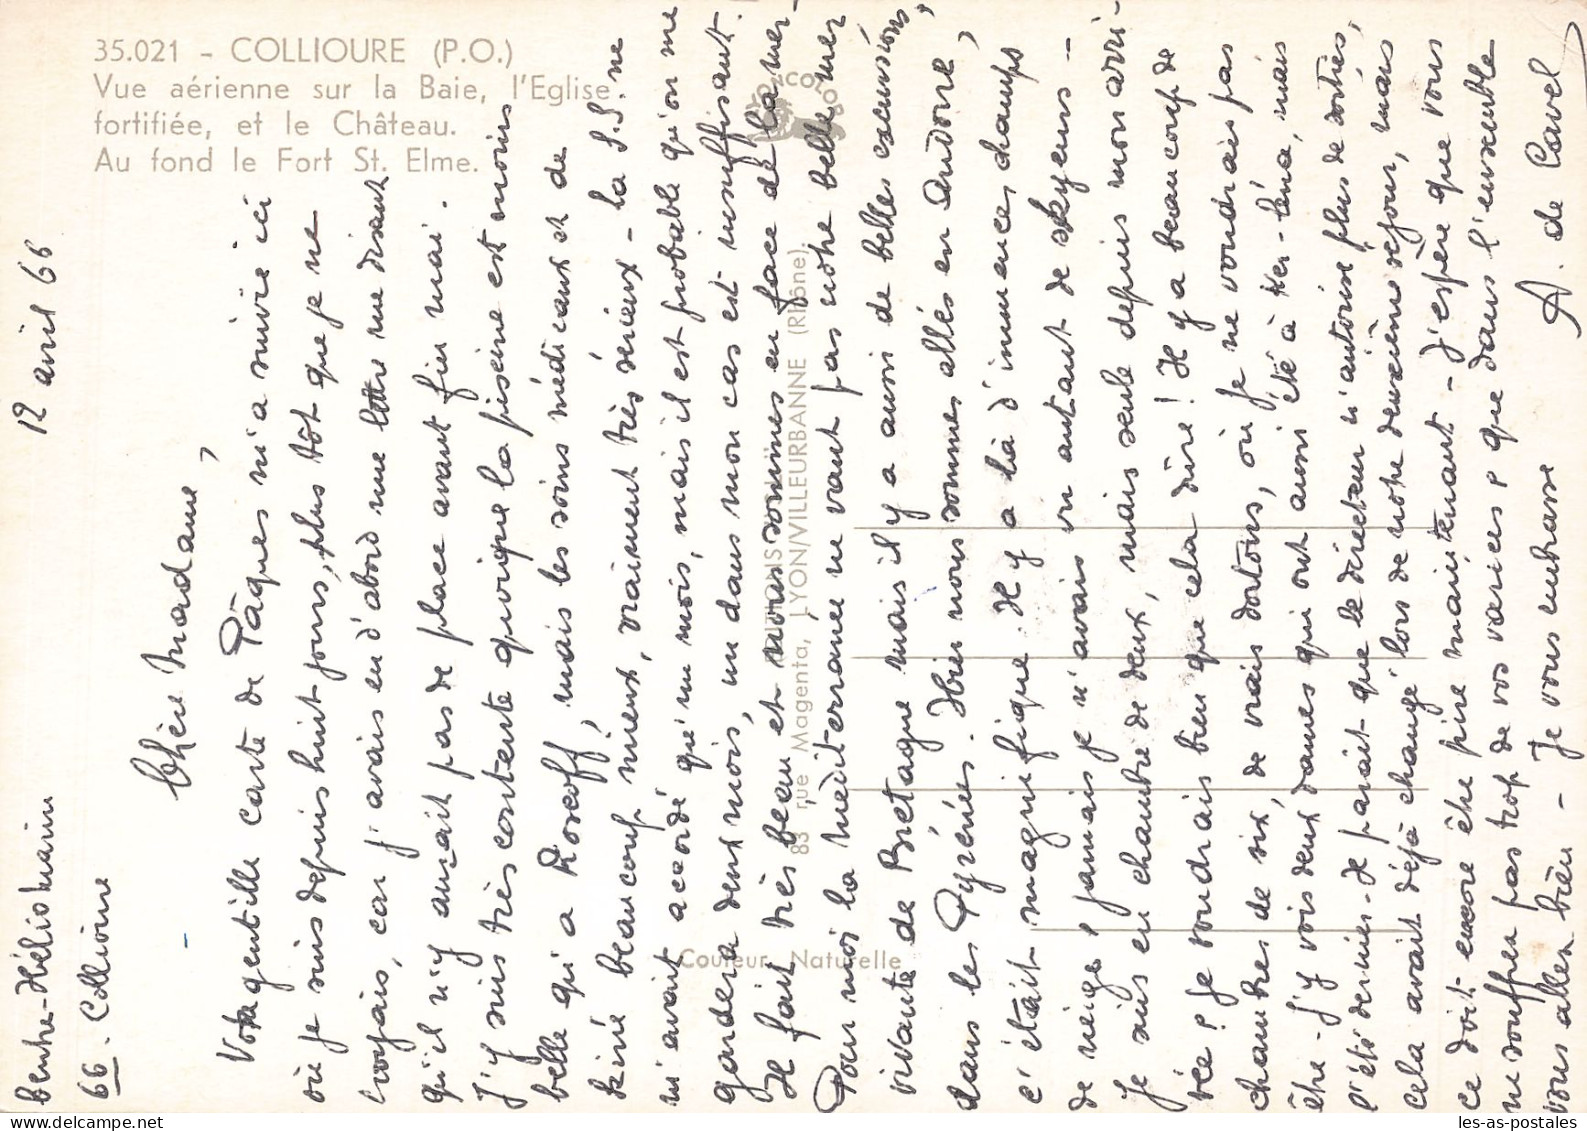 35.021 - COLLIOURE (P.O.)
Vue aérienne sur la Baie, l'Eglise
fortifiée, et le Château.
Au fond le Fort St. Elme.
LYONCOLOR
83 rue Magenta, LYON/VILLEURBANNE (Rhône)
Couleur Naturelle
Centre-Hélio Marin 12 avril 66
66. Collioure
Chère Madame,
Votre gentille carte de Pâques m'a suivie ici
où je suis depuis huit jours, plus tôt que je ne
croyais, car j'avais eu d'abord une lettre me disant
qu'il n'y aurait pas de place avant fin mai.
J'y suis très contente quoique la piscine est moins
belle qu'à Roscoff, mais les soins médicaux et de
kiné beaucoup mieux, vraiment très sérieux - la S.S. ne
m'avait accordé qu'un mois, mais il est probable qu'on me
gardera deux mois, un dans mon cas est insuffisant.
Il fait très beau et nous sommes en face de la mer -
Pour moi la méditerranée ne vaut pas notre belle mer
vivante de Bretagne mais il y a aussi de belles excursions,
dans les Pyrénées. Hier nous sommes allés en Andorre,
c'était magnifique. Il y a là d'immences champs
de neige, jamais je n'avais vu autant de skyeurs -
Je suis en chambre de deux, mais seule depuis mon arri-
vée ! Je voudrais bien que cela dure ! Il y a beaucoup de
chambres de six, de vrais dortoirs, où je ne voudrais pas
être - J'y vois deux dames qui ont aussi été à Ker-Léna, mais
l'été dernier - Il paraît que le directeur n'autorise plus de sorties,
cela avait déjà changé lors de notre deuxième séjour, mais
ce doit encore être pire maintenant - J'espère que vous
ne souffrez pas trop de vos varices et que dans l'ensemble
vous allez bien - Je vous embrasse
A. de Cavel
les-as-postales